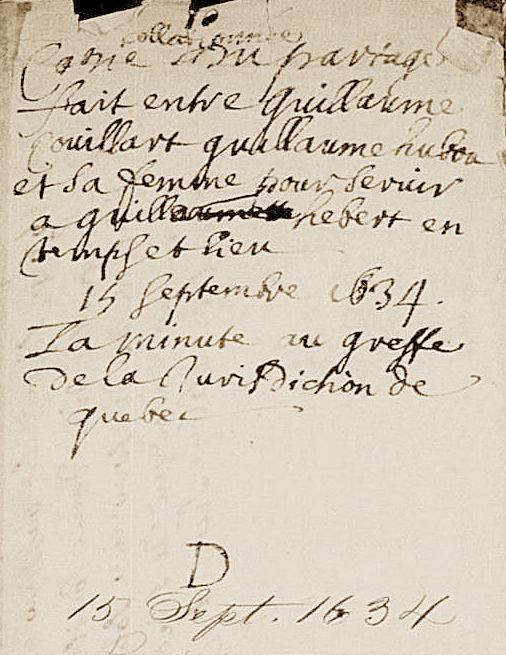 collationnée
Copie d'un partage
fait entre Guillaume
Couillart guillaume hubou
et sa femme pour servir
a guillaume hebert en
temps et lieu
15 septembre 1634.
La minute au greffe
de la Jurisdiction de
quebec
D
15 Sept. 1634